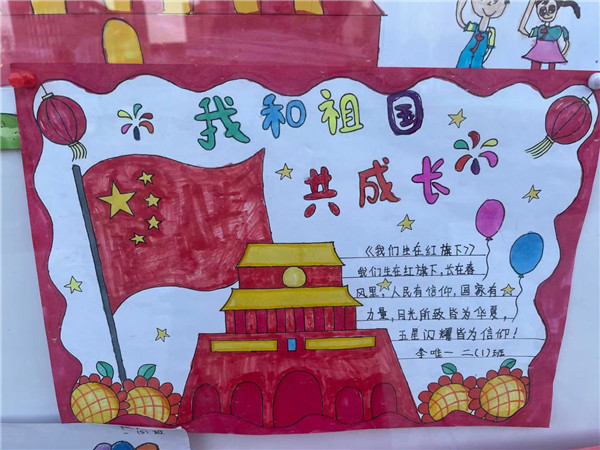 我和祖国
共成长
《我们生在红旗下》
我们生在红旗下，长在春
风里，人民有信仰，国家有
力量，目光所致皆为华夏，
五星闪耀皆为信仰！
李唯一 二（1）班